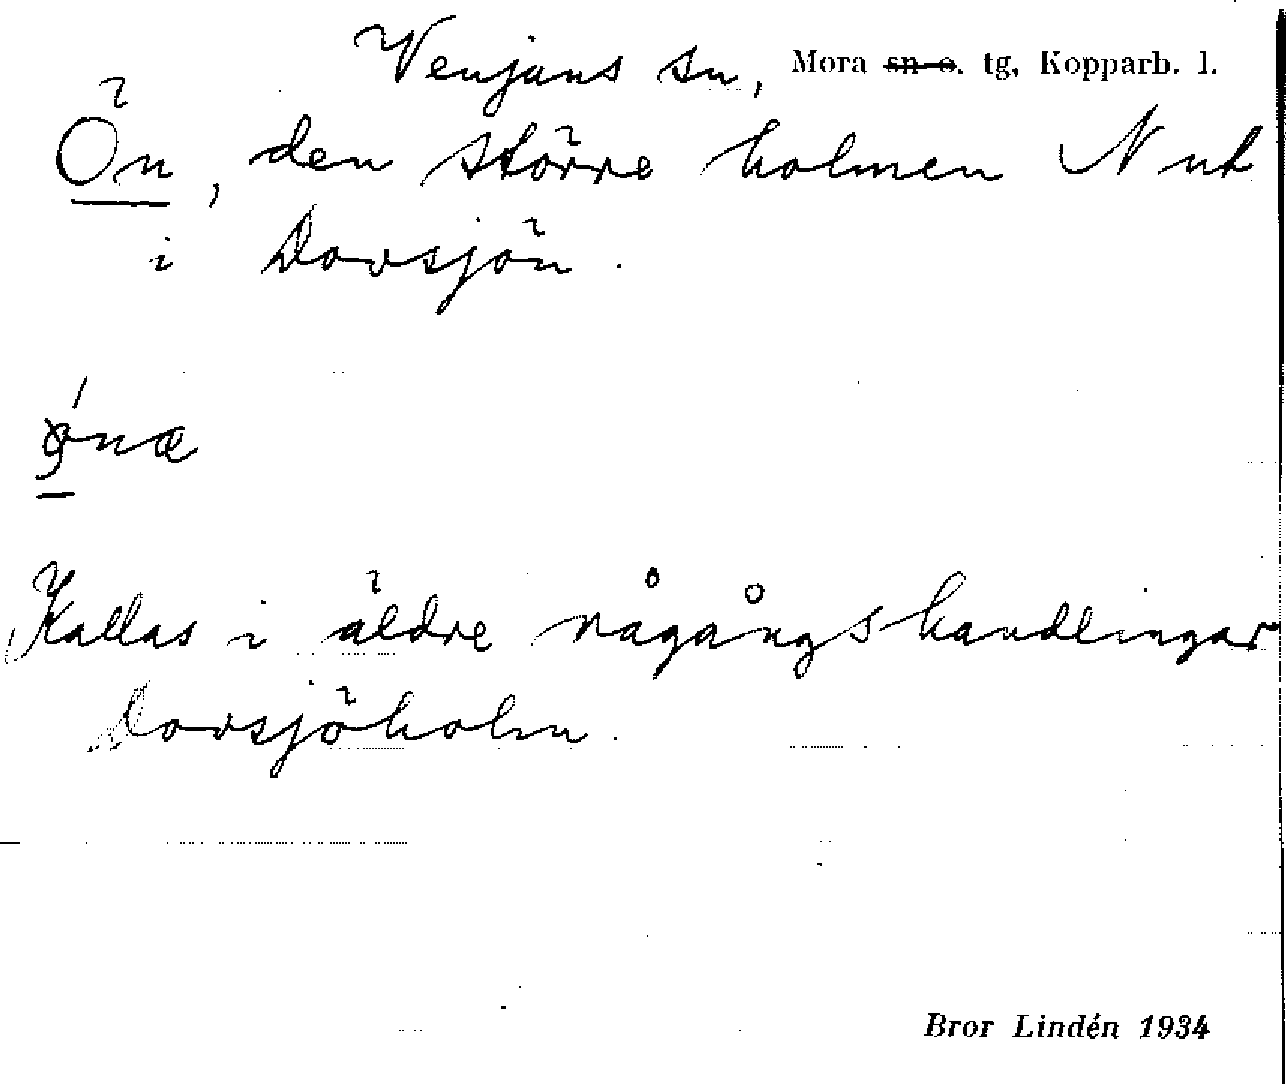 Venjans sn, Mora sn o. tg, Kopparb. l.
Ön, den större holmen N ut
i Dovsjön.
Kallas i äldre rågångshandlingar
Dovsjöholm.
Bror Lindén 1934